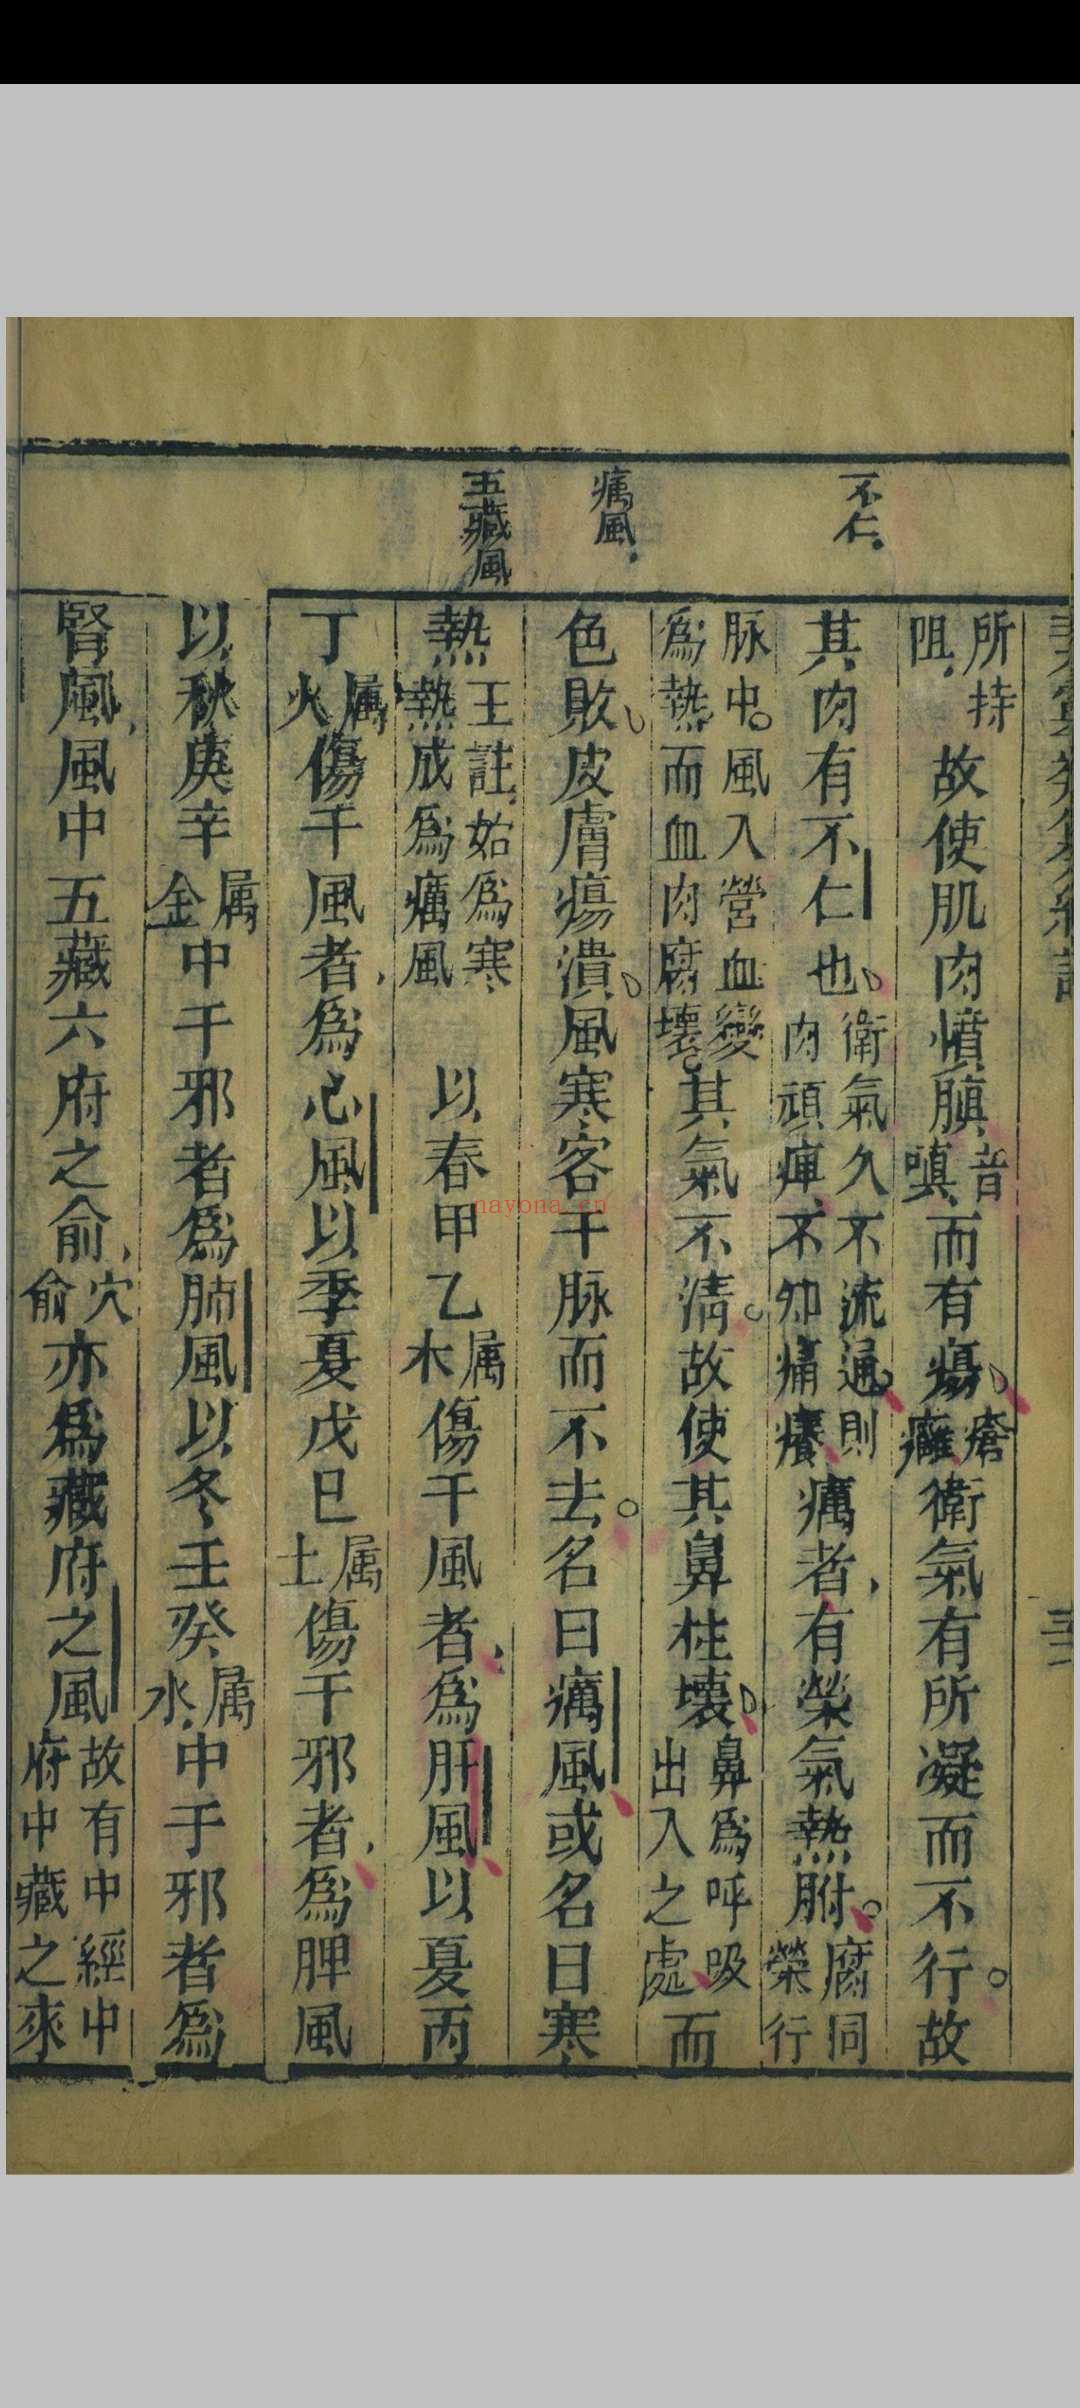 不仁
癘風
五藏風
所持阻故使肌肉憤䐜音嗔而有瘍瘡癰衛氣有所凝而不行故
其肉有不仁也衛氣久不流通則肉頑痺不知痛癢癘者有榮氣熱胕腐同榮行
脉中風入營血變為熱而血肉腐壞其氣不清故使其鼻柱壞鼻為呼吸出入之處而
色敗皮膚瘍潰風寒客于脉而不去名曰癘風或名曰寒
熱王註始為寒熱成為癘風 以春甲乙属木傷于風者為肝風以夏丙
丁属火傷于風者為心風以季夏戊巳属土傷于邪者為脾風
以秋庚辛属金中于邪者為肺風以冬壬癸属水中于邪者為
腎風風中五藏六府之俞穴俞亦為藏府之風故有中經中府中藏之來
nayona.cn